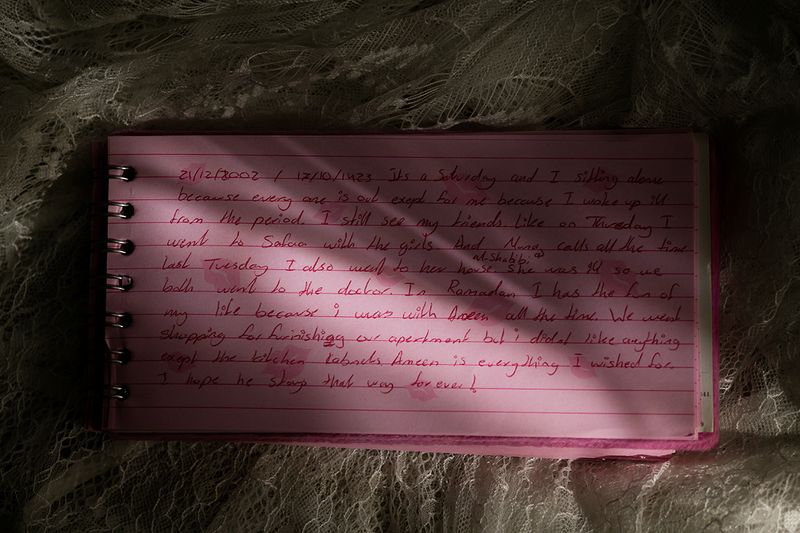 21/12/2002 / 17/10/1423 Its a Saturday and I sitting alone
because every one is out exept for me because I woke up ill
from the period. I still see my friends. Like on Thursday I
went to Safaa with the girls. And Mona calls all the time
Al-Shabibi
last Tuesday I also went to her house. She was ill so we
both went to the doctor. In Ramadan I has the fun of
my life because i was with Ameen all the time. We went
shopping for furnishigg our apartment but i didnt like anything
exept the kitchen kabnets. Ameen is everything I wished for.
I hope he stays that way for ever!